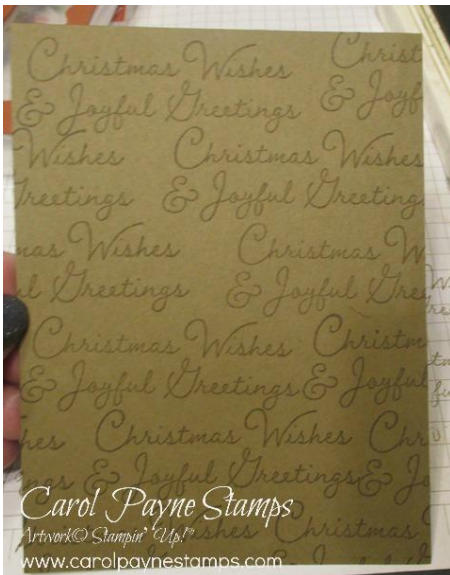 Christmas Wishes Christ
& Joyful Greetings & Joyf
Wishes Christmas Wishes
Greetings & Joyful Greeting
mas Wishes Christmas W
ul Greetings & Joyful Gree
Christmas Wishes Christm
& Joyful Greetings & Joyful
hes Christmas Wishes Chr
ngs & Joyful Greetings & J
Christmas Wishes
Carol Payne Stamps
Artwork© Stampin' Up!®
www.carolpaynestamps.com